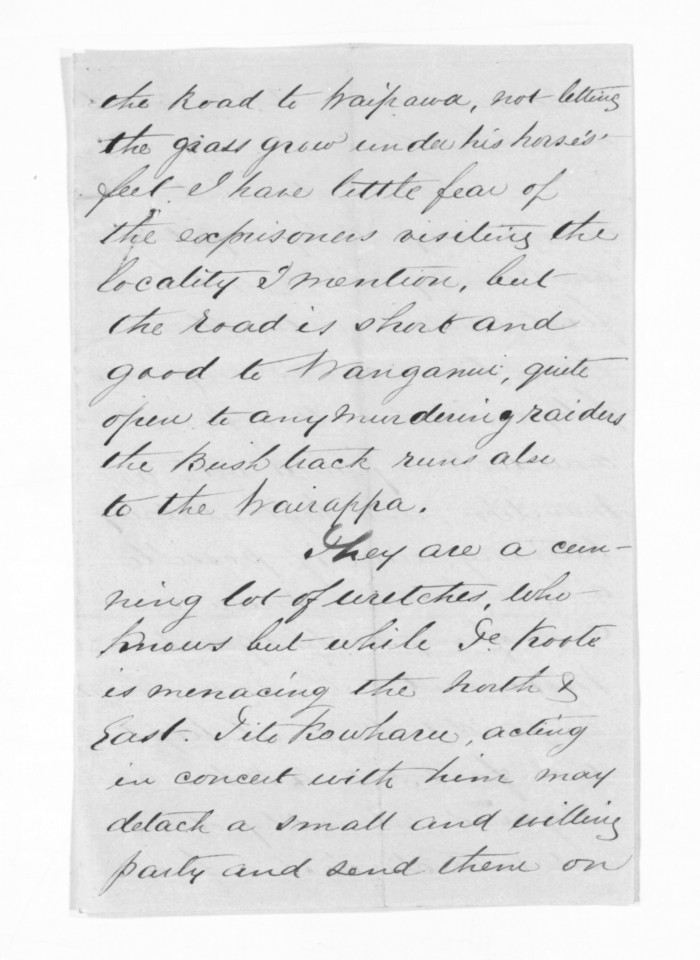 the Road to Waipawa, not letting
the grass grow under his horses'
feet. I have little fear of
the exprisoners visiting the
locality I mention, but
the road is short and
good to Wanganui, quite
open to any murdering raiders
the Bush track runs also
to the Wairappa.
They are a cun-
ning lot of wretches, who
knows but while Te Kooti
is menacing the North &
East. Tito Kowharu, acting
in concert with him may
detach a small and willing
party and send them on